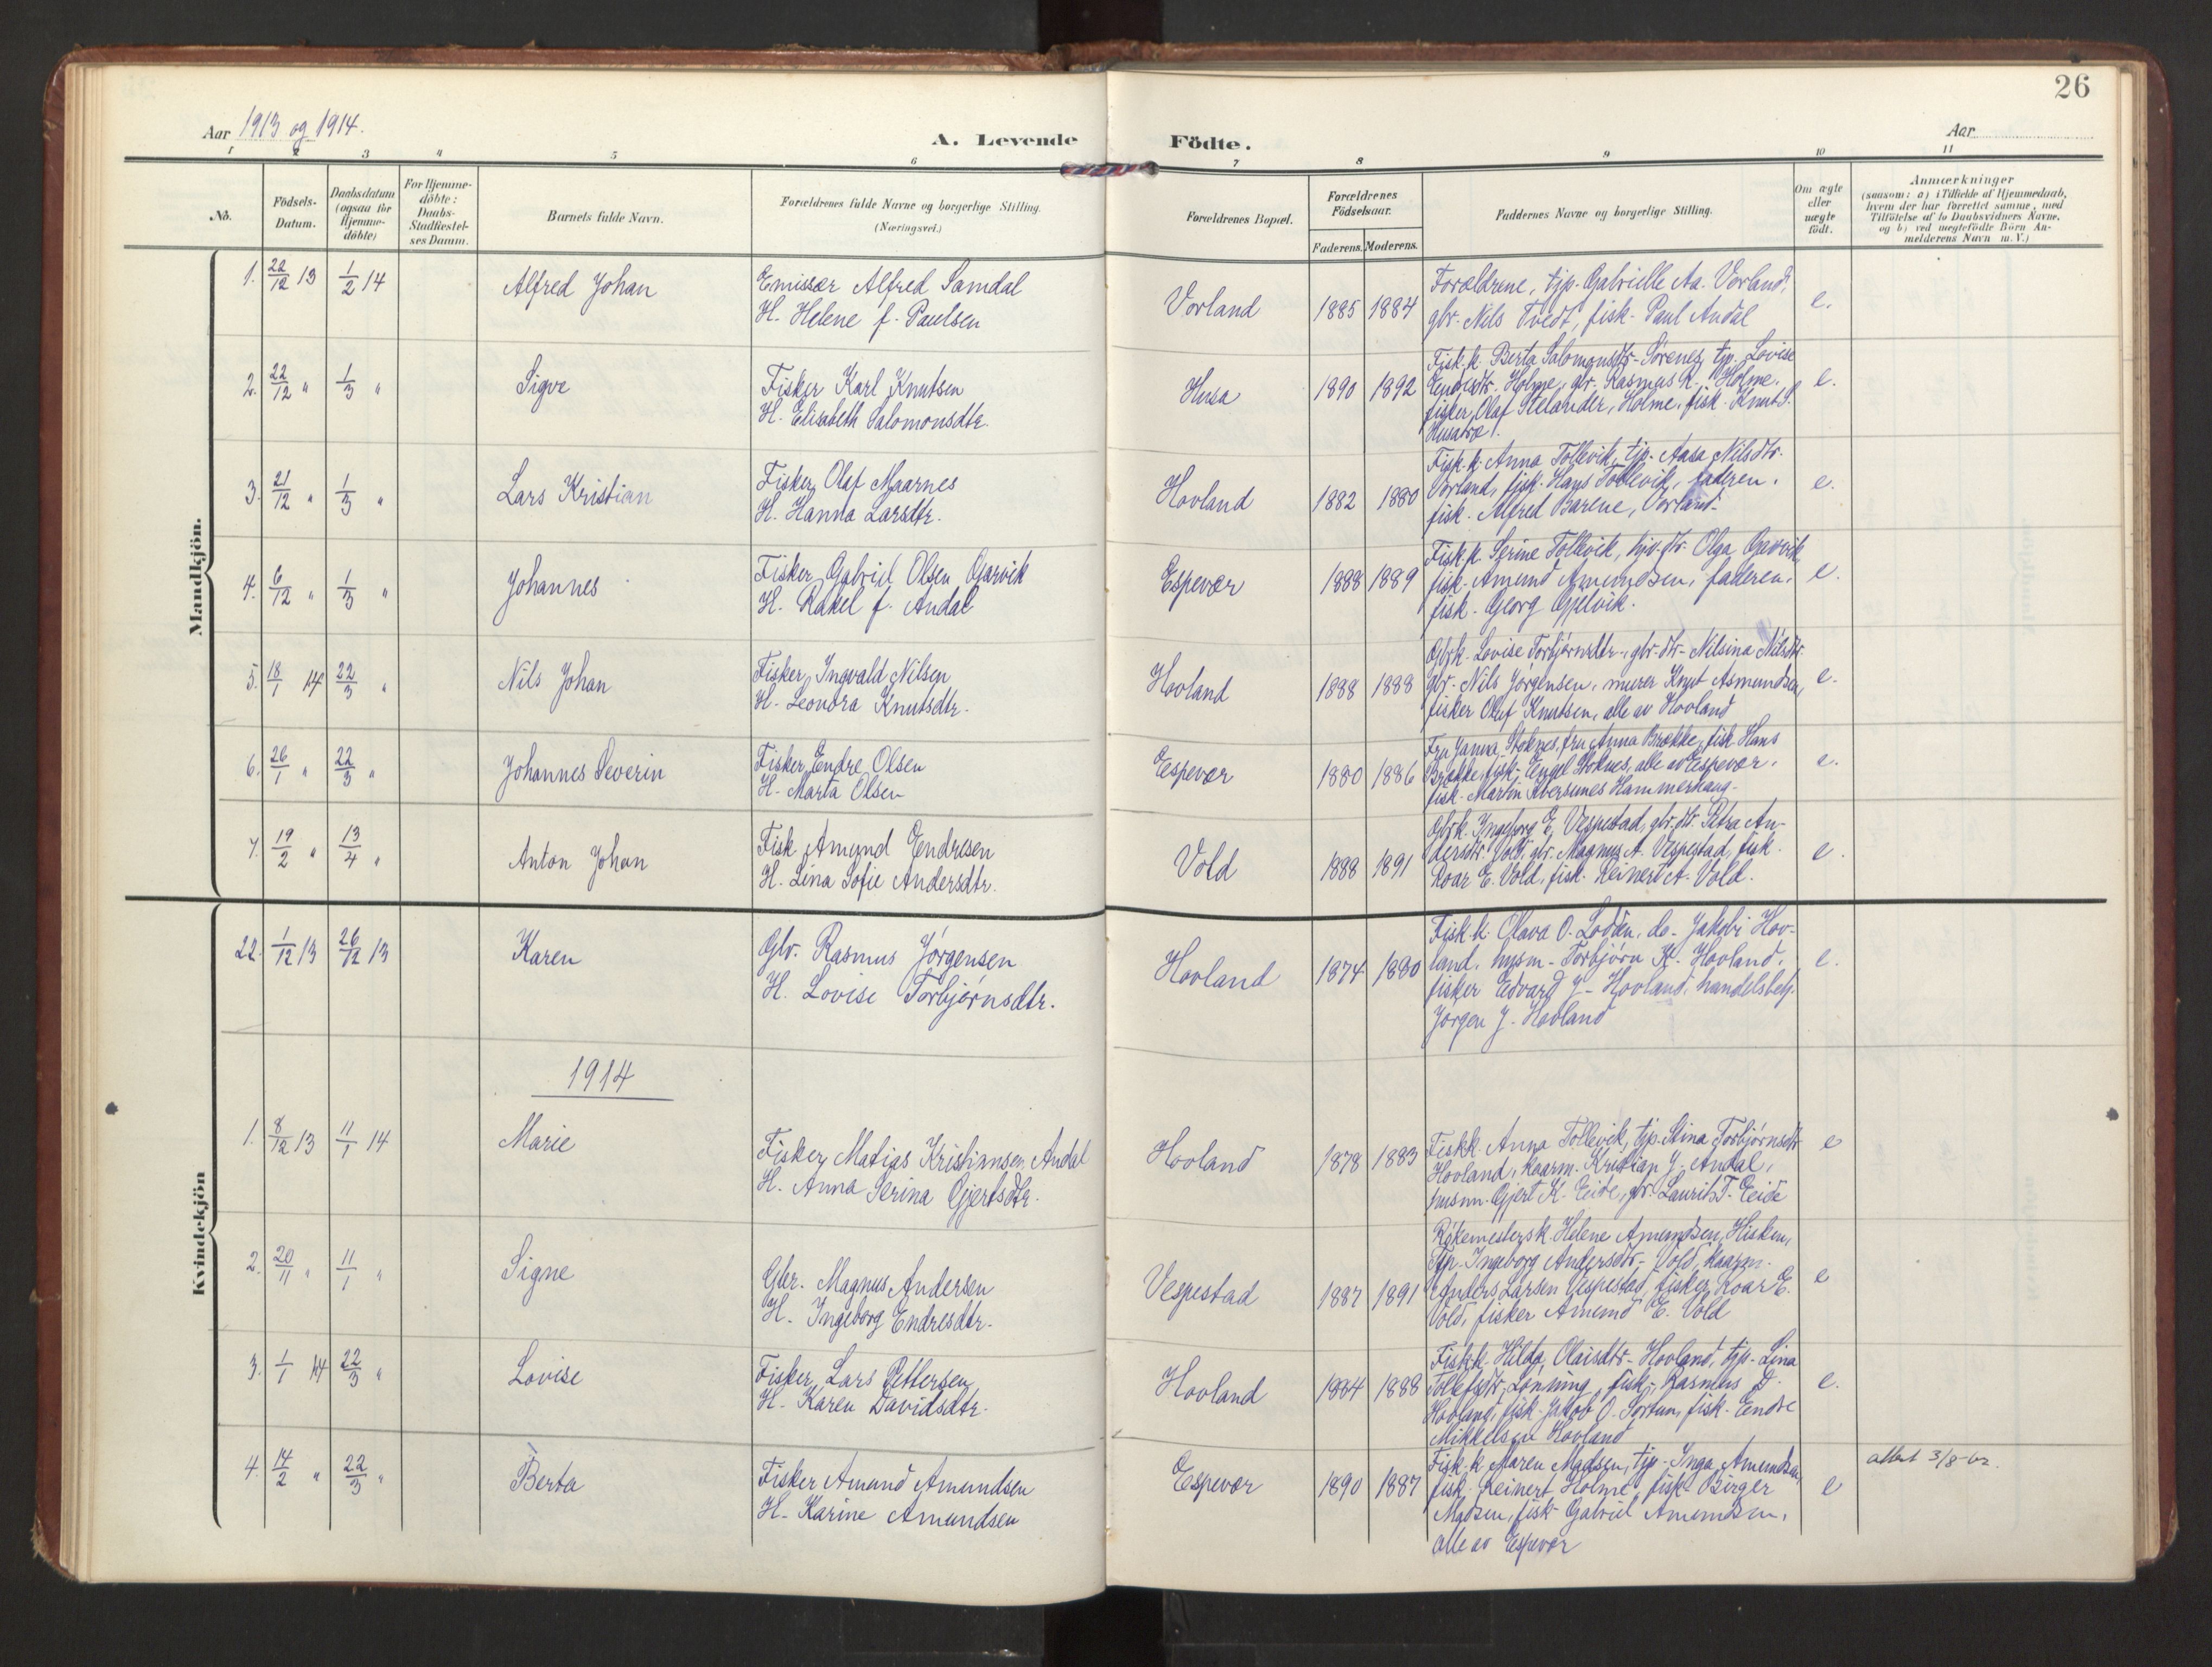 26
Aar 1913 og 1914.
A. Levende Födte.
Aar
1 2 3 4 5 6 7 8 9 10 11
No.
Födsels-
Datum.
Daabsdatum
(ogsaa for
Hjemme-
döbte)
For Hjemme-
döbte:
Daabs-
Stadfæstel-
ses Datum.
Barnets fulde Navn.
Forældrenes fulde Navne og borgerlige Stilling.
(Næringsvei.)
Forældrenes Bopæl.
Forældrenes
Födselsaar.
Faderens. Moderens.
Faddernes Navne og borgerlige Stilling.
Om ægte
eller
uægte
födt.
Anmærkninger
(saasom: a) i Tilfælde af Hjemmedaab,
hvem der har forrettet samme, med
Tilföielse af to Daabsvidners Navne,
og b) ved uægtefödte Börn An-
melderens Navn m.V.)
Mandkjön.
1. 22/12 13 1/2 14 Alfred Johan
Emissær Alfred Samdal
H. Helene f. Paulsen
Vorland 1885 1884
Forældrene, tjp. Gabrielle Aa. Vorland,
gbr. Nils Tvedt, fisk. Paul Andal
e.
2. 22/12 " 1/3 " Sigve
Fisker Karl Knutsen
H. Elisabeth Salomonsdtr.
Husa 1890 1892
Fisk.k. Berta Salomonsdtr. Sørenes, tjp. Lovise
Endresdtr. Holme, gbr. Rasmus R. Holme,
fisker Olaf Stelander, Holme, fisk. Knut S.
Husatræ.
e.
3. 21/12 " 1/3 " Lars Kristian
Fisker Olaf Maarnes
H. Hanna Larsdtr.
Hovland 1882 1880
Fisk.k. Anna Tollevik, tjp. Aasa Nilsdtr.
Vorland, fisk. Hans Tollevik, faderen,
fisk. Alfred Barene, Vorland.
e.
4. 6/12 " 1/3 " Johannes
Fisker Gabriel Olsen Garvik
H. Rakel f. Andal
Espevær 1888 1889
Fisk.k. Serine Tollevik, hjv. dtr. Olga Garvik,
fisk. Amund Amundsen, faderen,
fisk. Georg Gjelvik.
e.
5. 18/1 14 22/3 " Nils Johan
Fisker Ingvald Nilsen
H. Leonora Knutsdtr.
Hovland 1888 1888
Gbrk. Lovise Torbjørnsdtr., gbr. dtr. Nilsina Nilsdtr.
gbr. Nils Jørgensen, murer Knut Asmundsen,
fisker Oluf Knutsen, alle av Hovland
e.
6. 26/1 " 22/3 " Johannes Severin
Fisker Endre Olsen
H. Marta Olsen
Espevær 1880 1886
Fru Janna Stoknes, fru Anna Brække, fisk. Hans
Brække, fisk. Engel Stoknes, alle av Espevær,
fisk. Martin Hammerhaug.
e.
7. 19/2 " 13/4 " Anton Johan
Fisk. Amund Endresen
H. Lina Sofie Andersdtr.
Vold 1888 1891
Gbrk. Ingeborg E. Vespestad, gbr. dtr. Petra An-
dersdtr. Vold, gbr. Magnus A. Vespestad, fisk.
Roar E. Vold, fisk. Reinert A. Vold.
e.
Kvindekjön
22. 1/12 13 26/12 13 Karen
Gbr. Rasmus Jørgensen
H. Lovise Torbjørnsdtr.
Hovland 1874 1880
Fisk.k. Olava O. Lodden, do. Jakobi Hov-
land, husm. Torbjørn K. Hovland,
fisker Edvard J. Hovland, handelsbetj.
Jørgen J. Hovland
e.
1914
1. 8/12 13 11/1 14 Marie
Fisker Matias Kristiansen Andal
H. Anna Serina Gjertsdtr.
Hovland 1878 1883
Fiskk. Anna Tollevik, tjp. Stina Torbjørnsdtr.
Hovland, kaarm. Kristian J. Andal,
husm. Gjert K. Eide, gbr. Laurits T. Eide
e
2. 20/11 " 11/1 " Signe
Gbr. Magnus Andersen
H. Ingeborg Endresdtr.
Vespestad 1887 1891
Røkemesterk. Helene Amundsen, Hisken,
Tjp. Ingeborg Andersdtr. Vold, kaarm.
Anders Larsen Vespestad, fisker Roar E.
Vold, fisker Amund E. Vold
e
3. 1/1 14 22/3 " Lovise
Fisker Lars Pettersen
H. Karen Davidsdtr.
Hovland 1884 1888
Fisk.k. Hilda Olaisdtr. Hovland, tjp. Lina
Tollefsdtr. Lønning, fisk. Rasmus D.
Hovland, fisk. Jakob O. Sortun, fisk. Endre
Mikkelsen Hovland
e.
4. 14/2 " 22/3 " Berta
Fisker Amund Amundsen
H. Karine Amundsen
Espevær 1890 1887
Fisk.k. Maren Madsen, tjp. Inga Amundsen,
fisk. Reinert Holme, fisk. Birger
Madsen, fisk. Gabriel Amundsen,
alle av Espevær
e
attest 3/8-62.